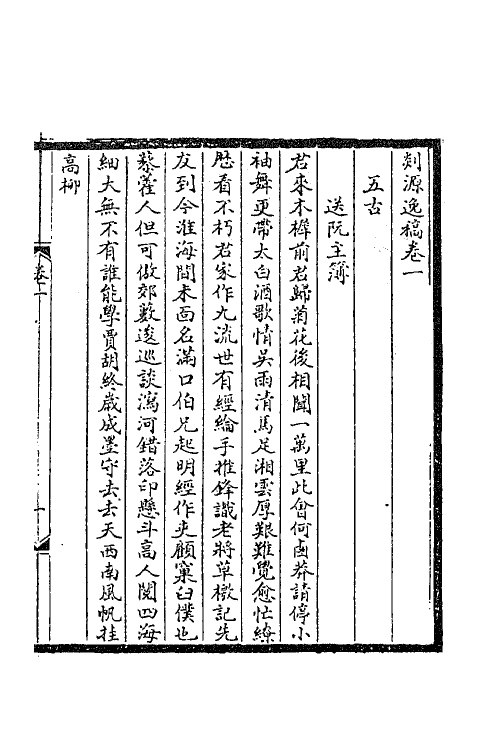 剡源逸稿卷一
五古
送阮主簿
君來木樨前君歸菊花後相聞一萬里此會何鹵莽請停小
袖舞更帶太白酒歌情吳雨清馬足湘雲厚艱難覺愈忙繚
歴看不朽君家作九流世有經綸手推鋒識老將草檄記先
友到今淮海間未面名滿口伯兄起明經作吏顧窠臼僕也
藜藿人但可倣郊藪逡巡談瀉河錯落印懸斗高人閱四海
細大無不有誰能學賈胡終歲成墨守去去天西南風帆挂
高柳
卷一
一